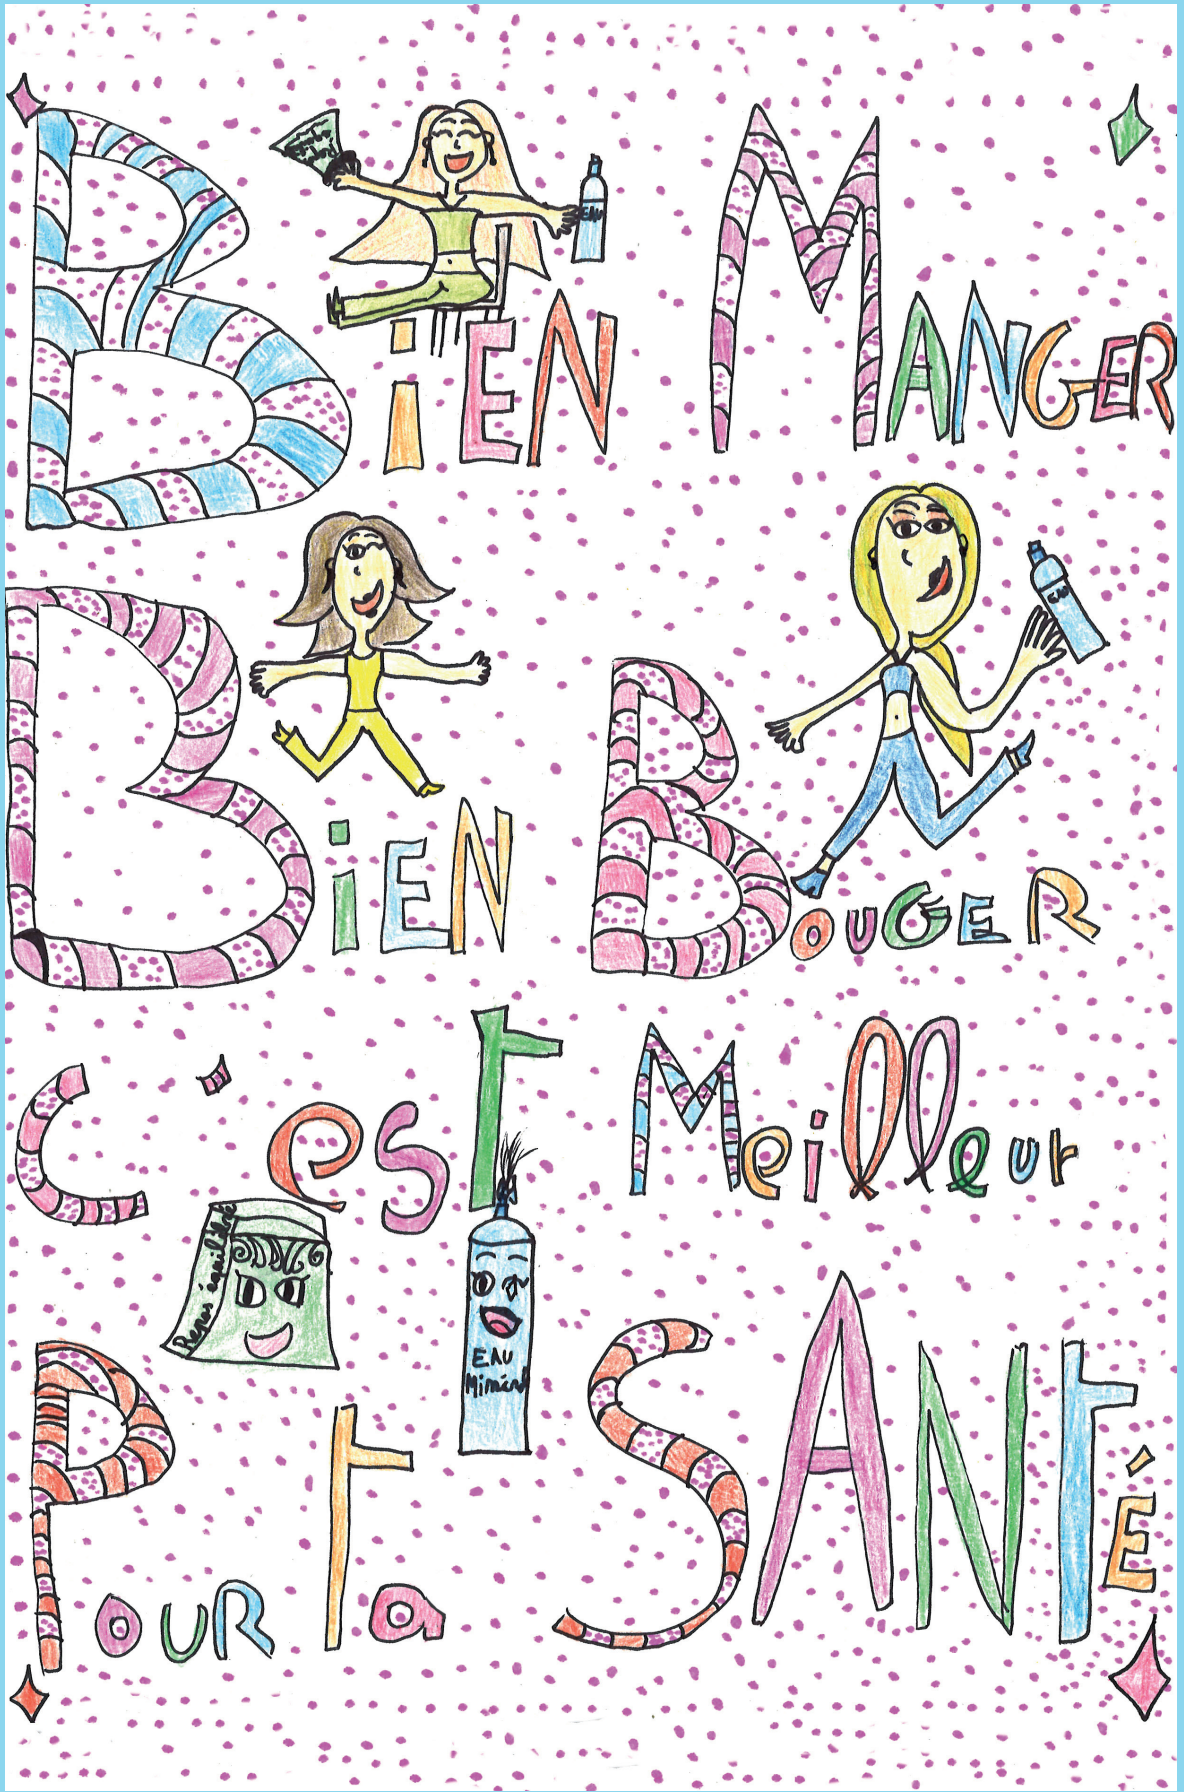 BiEN MANGER
EAU
BiEN BOUGER
EAU
C'esT Meilleur
Repas équilibré
EAU
Minéral
POUR Ta SANTÉ